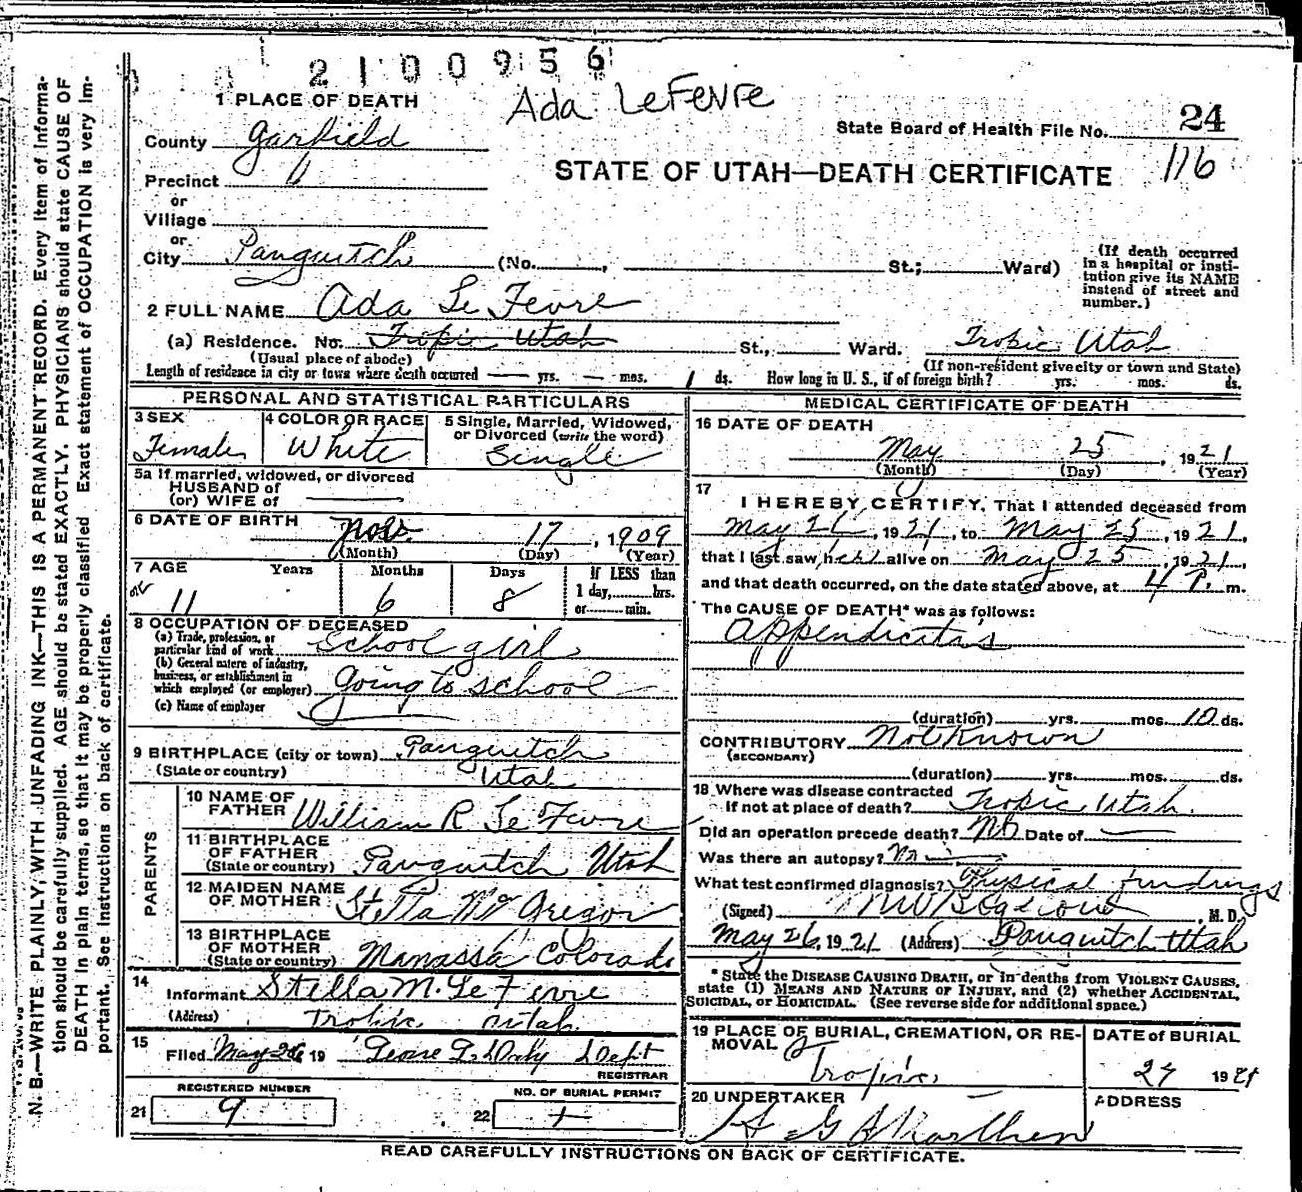 2100956
Ada LeFevre
1 PLACE OF DEATH
State Board of Health File No. 24
County Garfield
116
STATE OF UTAH—DEATH CERTIFICATE
Precinct
or
Village
or
City Panguitch (No. , St.; Ward)
(If death occurred in a hospital or institution give its NAME instead of street and number.)
2 FULL NAME Ada Le Fevre
(a) Residence. No. Tropic Utah St., Ward. Tropic Utah
(Usual place of abode) (If non-resident give city or town and State)
Length of residence in city or town where death occurred — yrs. — mos. 1 ds. How long in U. S., if of foreign birth? yrs. mos. ds.
PERSONAL AND STATISTICAL PARTICULARS
3 SEX Female
4 COLOR OR RACE White
5 Single, Married, Widowed, or Divorced (write the word) Single
5a If married, widowed, or divorced
HUSBAND of
(or) WIFE of
6 DATE OF BIRTH Nov. 17, 1909
(Month) (Day) (Year)
7 AGE Years Months Days If LESS than
1 day, hrs.
or min.
11 6 8
8 OCCUPATION OF DECEASED
(a) Trade, profession, or particular kind of work School girl
(b) General nature of industry, business, or establishment in which employed (or employer) Going to school
(c) Name of employer
9 BIRTHPLACE (city or town) Panguitch
(State or country) Utah
PARENTS
10 NAME OF FATHER William R Le Fevre
11 BIRTHPLACE OF FATHER (State or country) Panguitch Utah
12 MAIDEN NAME OF MOTHER Stella Mc Gregor
13 BIRTHPLACE OF MOTHER (State or country) Manassa Colorado
14 Informant Stella M. Le Fevre
(Address) Tropic Utah
15 Filed May 26 19 George G. Daly Dept
REGISTRAR
REGISTERED NUMBER
21 9
NO. OF BURIAL PERMIT
22
MEDICAL CERTIFICATE OF DEATH
16 DATE OF DEATH
May 25, 1921
(Month) (Day) (Year)
17 I HEREBY CERTIFY, That I attended deceased from
May 1921, to May 25, 1921,
that I last saw her alive on May 25, 1921,
and that death occurred, on the date stated above, at 4 P. m.
The CAUSE OF DEATH* was as follows:
Appendicitis
(duration) yrs. mos. 10 ds.
CONTRIBUTORY Not Known
(SECONDARY)
(duration) yrs. mos. ds.
18 Where was disease contracted
If not at place of death? Tropic Utah.
Did an operation precede death? No Date of —
Was there an autopsy? No
What test confirmed diagnosis? Physical findings
(Signed) , M. D.
May 26, 1921 (Address) Panguitch Utah
* State the DISEASE CAUSING DEATH, or in deaths from VIOLENT CAUSES, state (1) MEANS AND NATURE OF INJURY, and (2) whether ACCIDENTAL, SUICIDAL, or HOMICIDAL. (See reverse side for additional space.)
19 PLACE OF BURIAL, CREMATION, OR REMOVAL
Tropic
DATE of BURIAL
27 1921
20 UNDERTAKER
ADDRESS
READ CAREFULLY INSTRUCTIONS ON BACK OF CERTIFICATE.
N. B.—WRITE PLAINLY, WITH UNFADING INK—THIS IS A PERMANENT RECORD. Every item of information should be carefully supplied. AGE should be stated EXACTLY. PHYSICIANS should state CAUSE OF DEATH in plain terms, so that it may be properly classified. Exact statement of OCCUPATION is very important. See instructions on back of certificate.